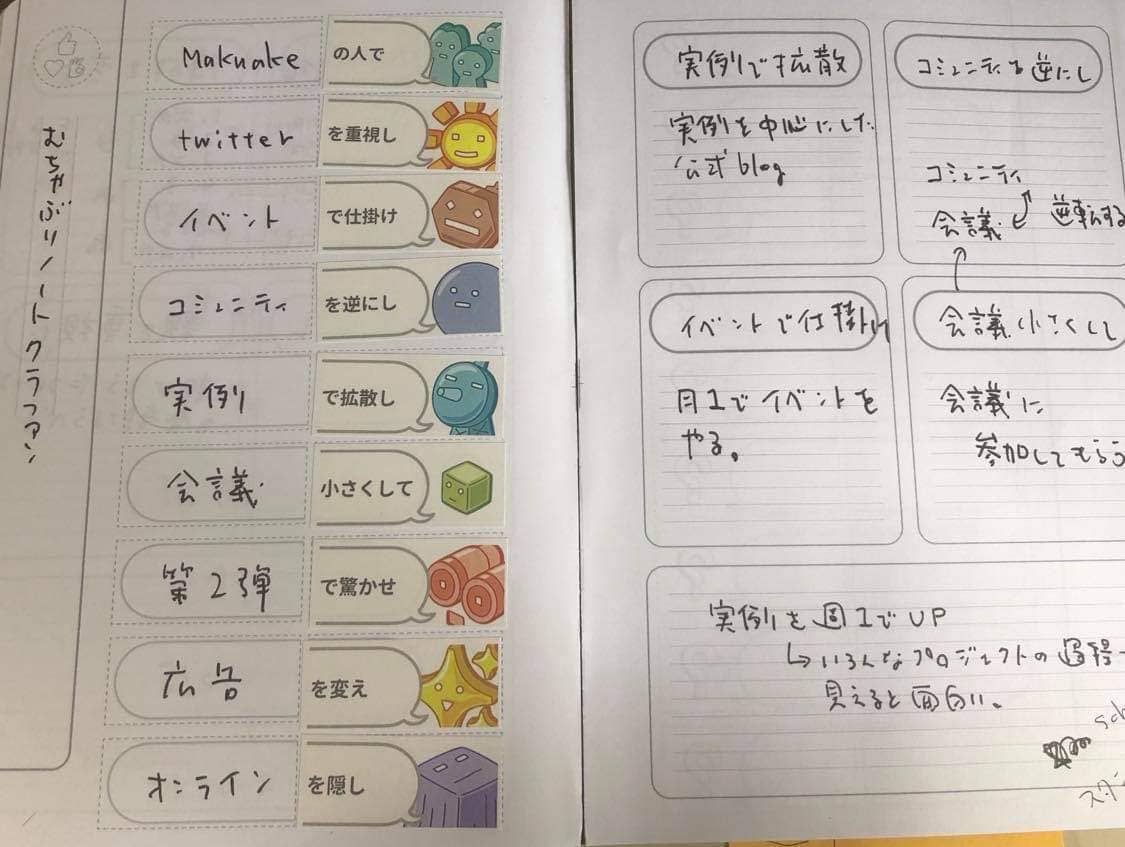 むちゃぶりノートクラファン
Makuake の人で
twitter を重視し
イベント で仕掛け
コミュニティ を逆にし
実例 で拡散し
会議 小さくして
第2弾 で驚かせ
広告 を変え
オンライン を隠し
実例で拡散
実例を中心にした
公式blog
コミュニティを逆にし
コミュニティ
会議
逆転する
イベントで仕掛け
月1でイベントを
やる。
会議小さくして
会議に
参加してもらう
実例を週1でUP
↳いろんなプロジェクトの過程
見えると面白い。